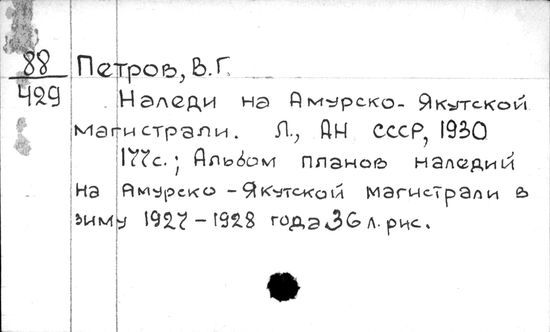 88
429
Петров, В.Г.
Наледи на Амурско-Якутской
магистрали. Л., АН СССР, 1930
177с.; Альбом планов наледий
на Амурско-Якутской магистрали в
зиму 1927-1928 года 36 л. рис.